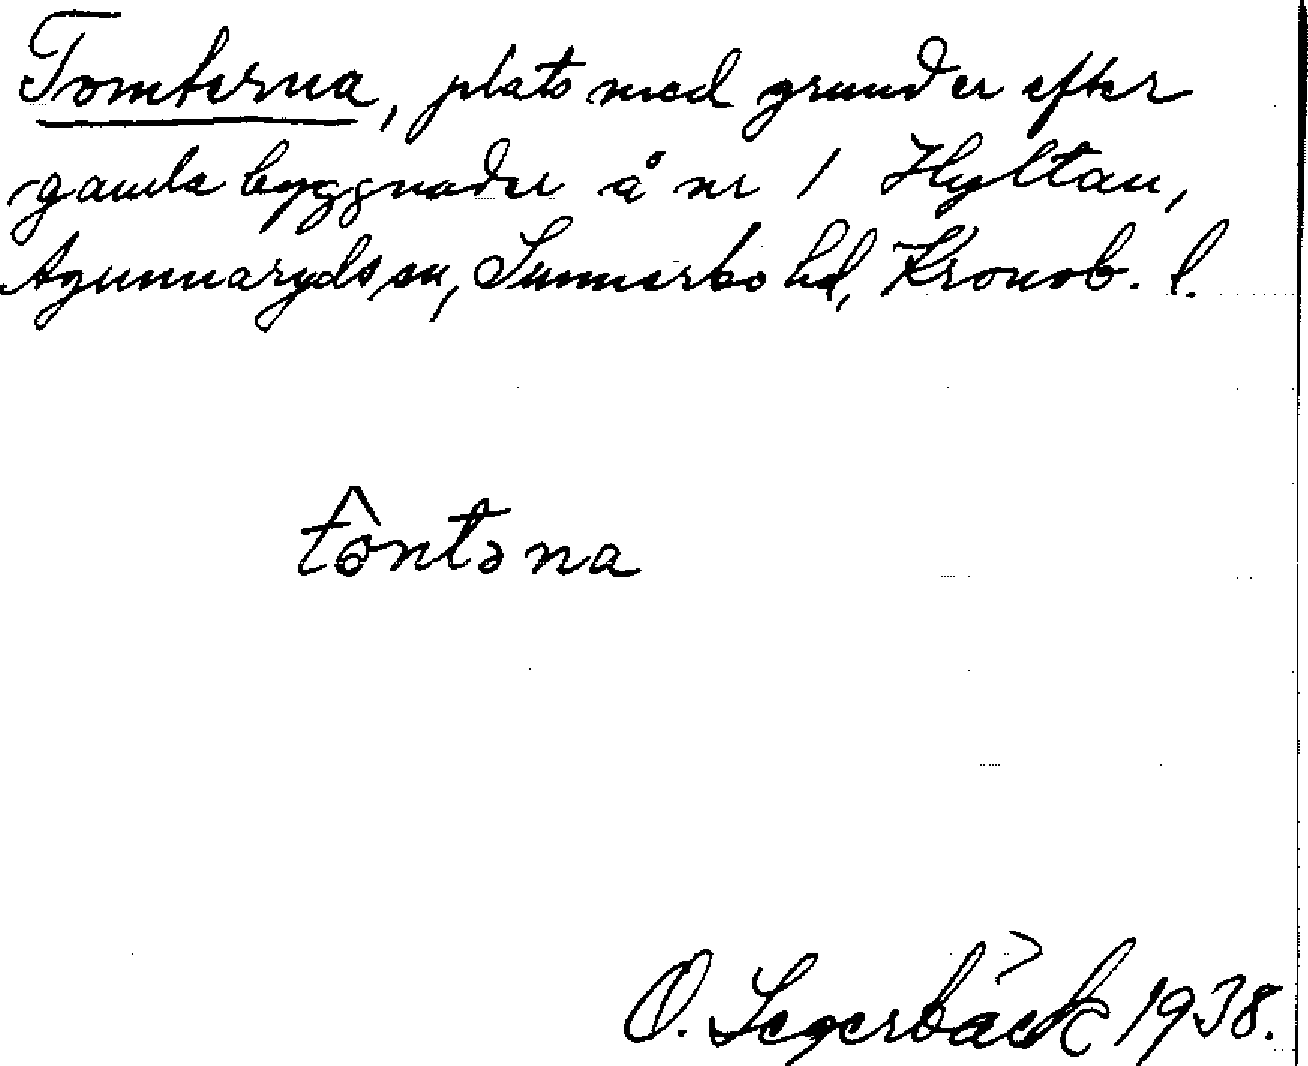 Tomterna, plats med grunder efter
gamla byggnader å nr 1 Hyltan,
Agunnaryds sn, Sunnerbo hd, Kronob. l.
tôntəna
O. Segerbäck 1938.